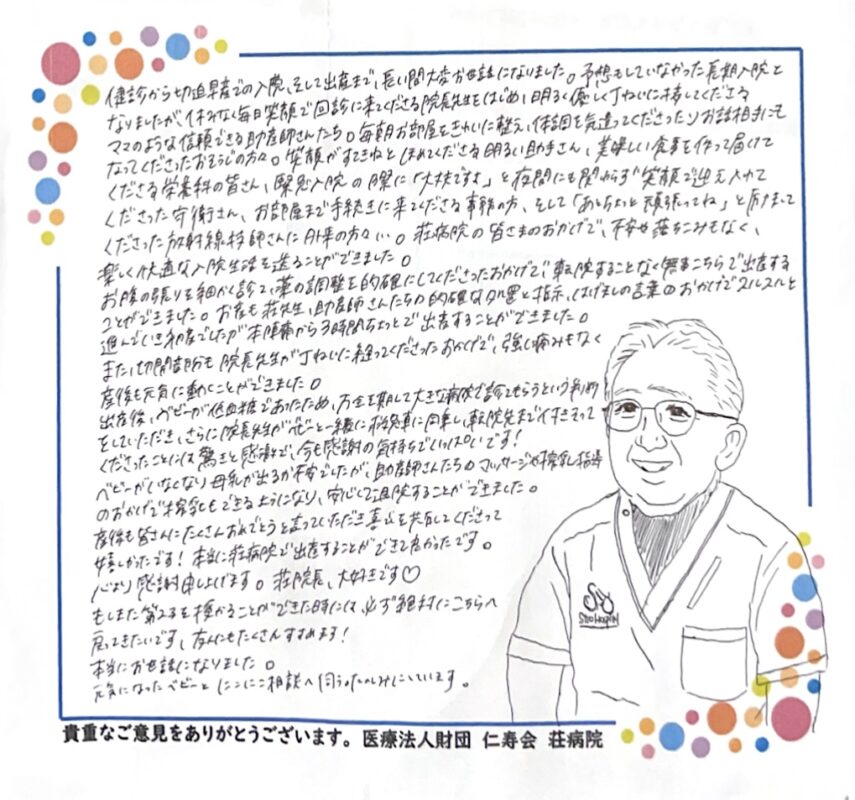 健診から切迫早産での入院、そして出産まで、長い間大変お世話になりました。予想もしていなかった長期入院と
なりましたが、休みなく毎日笑顔で回診に来てくださる院長先生をはじめ、明るく優しく丁ねいに接してくださる
ママのような信頼できる助産師さんたち。毎朝お部屋をきれいに整え、体調を気遣ってくださったりお話相手にも
なってくださったおそうじの方々。笑顔がすてきねとほめてくださる明るい助手さん、美味しい食事を作って届けて
くださる栄養科の皆さん、緊急入院の際に「大丈夫ですよ」と夜間にも関わらず笑顔で迎え入れて
くださった守衛さん、お部屋まで手続きに来てくださる事務の方、そして「あとちょっと頑張ってね」と励まして
くださった放射線技師さんに外来の方々…。荘病院の皆さまのおかげで、不安や落ちこみもなく、
楽しく快適な入院生活を送ることができました。
お腹の張りを細かく診て、薬の調整を的確にしてくださったおかげで、転院することなく無事こちらで出産する
ことができました。お産も荘先生、助産師さんたちの的確な処置と指示、はげましの言葉のおかげでスルスルと
進んでいき初産でしたが本陣痛から3時間ちょっとで出産することができました。
また、切開部分も院長先生が丁ねいに縫ってくださったおかげで、強い痛みもなく
産後も元気に動くことができました。
出産後、ベビーが低血糖であったため、万全を期して大きな病院で診てもらうという判断
をしていただき、さらに院長先生がベビーと一緒に救急車に同乗し、転院先まで付きそって
くださったことには驚きと感激で、今も感謝の気持ちでいっぱいです!
ベビーがいなくなり母乳が出るか不安でしたが、助産師さんたちのマッサージや搾乳指導
のおかげで搾乳もできるようになり、安心して退院することができました。
産後も皆さんにたくさんおめでとうと言っていただき喜びを共有してくださって
嬉しかったです!本当に荘病院で出産することができて良かったです。
心より感謝申し上げます。荘院長、大好きです♡
もしまた第2子を授かることができた時には、必ず絶対にこちらへ
戻ってきたいです、友人にもたくさんすすめます!
本当にお世話になりました。
元気になったベビーとにこにこ相談へ伺うのたのしみにしています。
Sho Hospital
貴重なご意見をありがとうございます。医療法人財団 仁寿会 荘病院